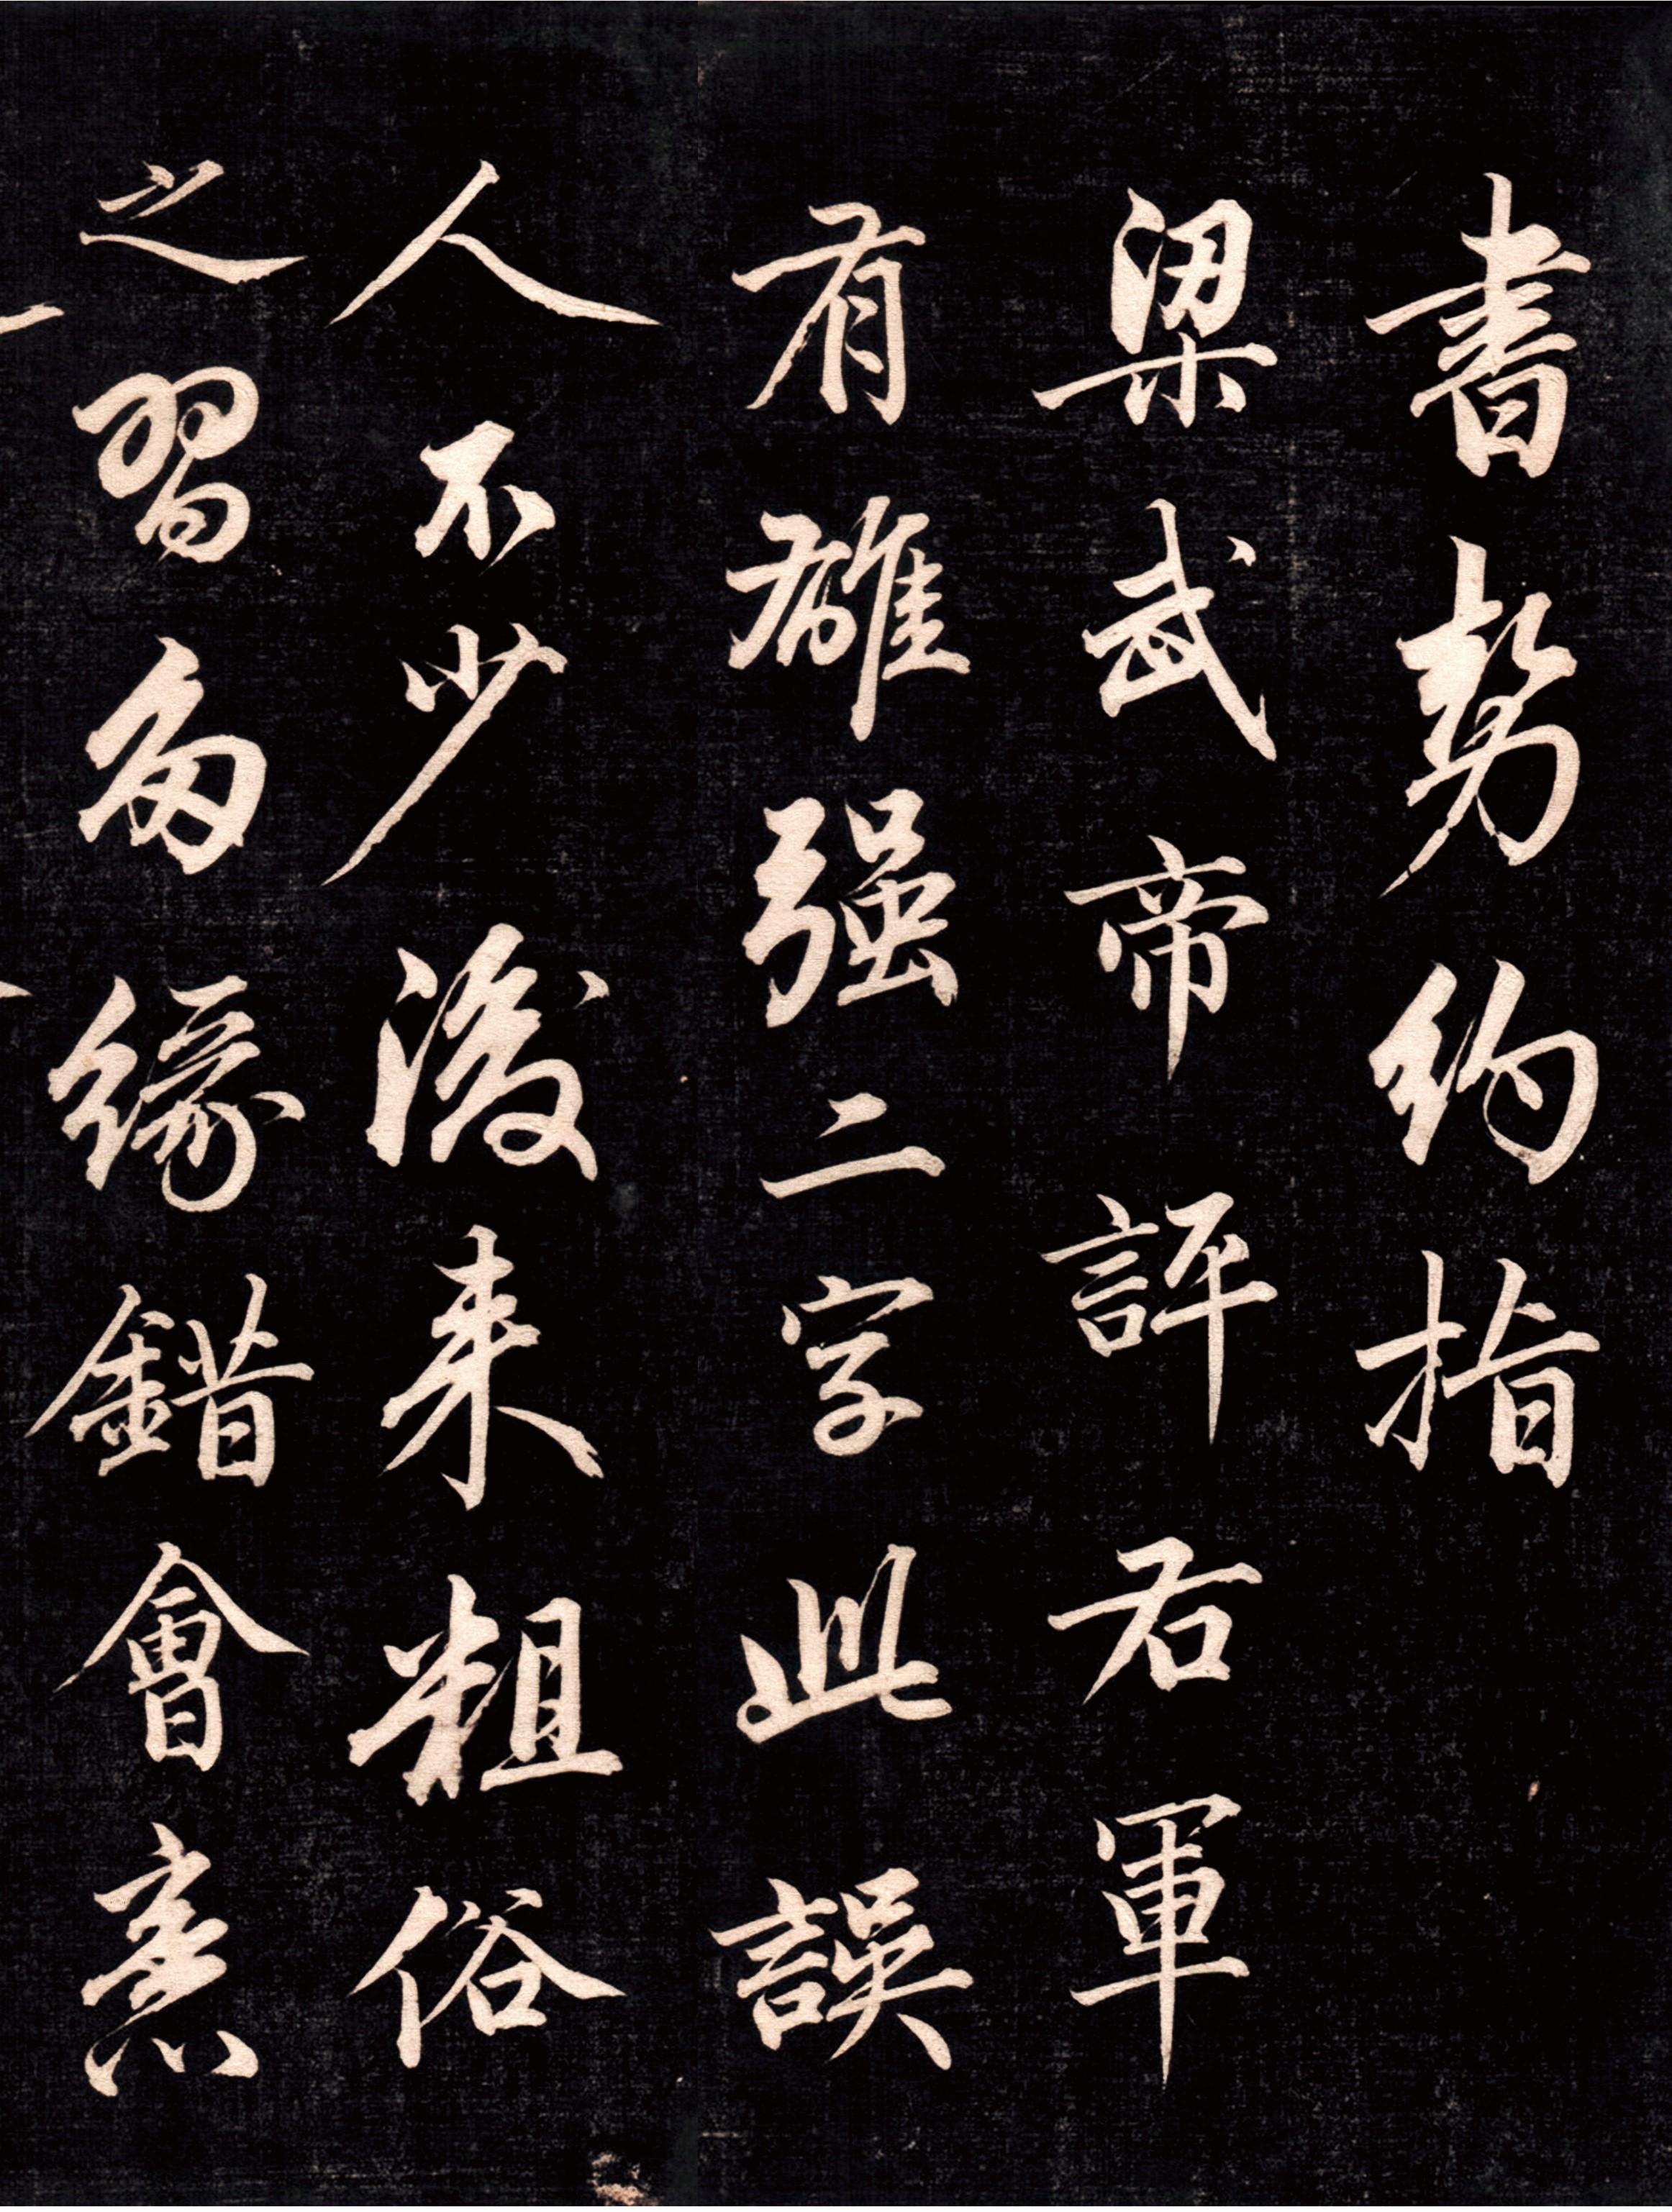 書勢約指
梁武帝評右軍
有雄强二字此誤
人不少後来粗俗
之習多緣錯會意